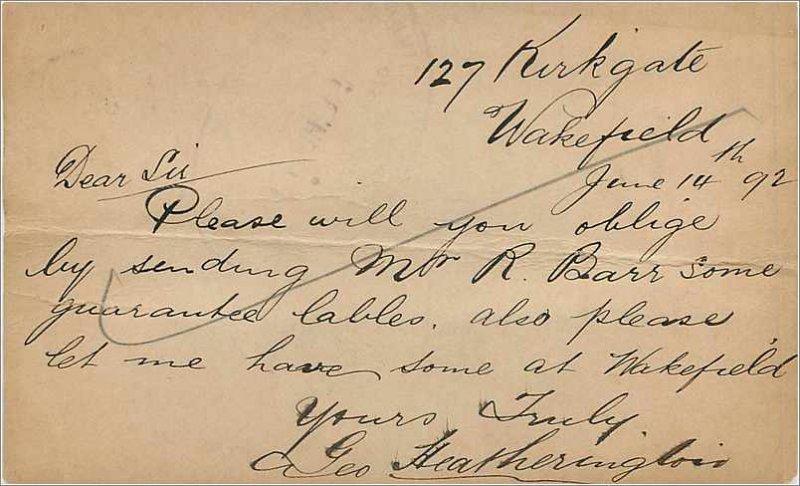 127 Kirkgate
Wakefield
June 14th 92
Dear Sir
Please will you oblige
by sending Mr R. Barr some
guarantee lables. also please
let me have some at Wakefield
Yours Truly
Geo Heatherington